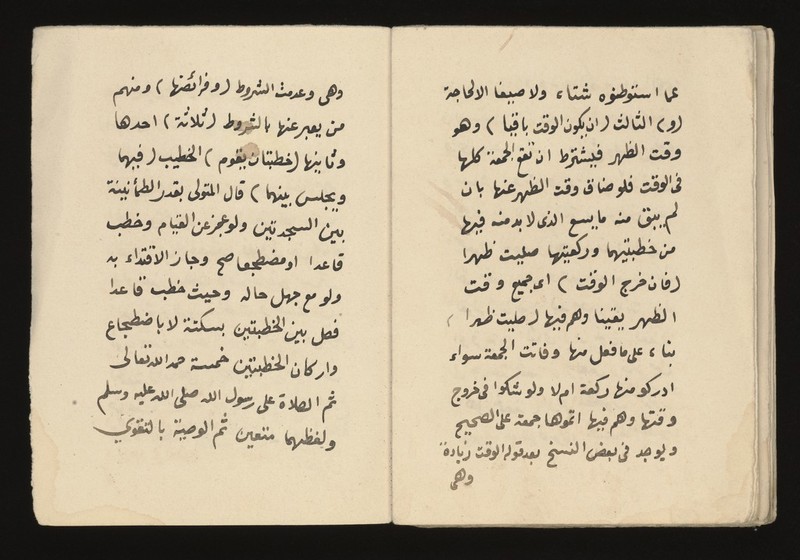 عما استوطنوه شتاء ولا صيفا الا لحاجة
(و) الثالث (ان يكون الوقت باقيا) وهو
وقت الظهر فيشترط ان تقع الجمعة كلها
فى الوقت فلو ضاق وقت الظهر عنها بان
لم يبق منه ما يسع الذى لا بد منه فيها
من خطبتيهما وركعتيها صليت ظهرا
(فان خرج الوقت) اى جميع وقت
الظهر يقينا وهم فيها (صليت ظهرا)
بناء على ما فعل منها وفاتت الجمعة سواء
ادركوا منها ركعة ام لا ولو شكوا فى خروج
وقتها وهم فيها اتموها جمعة على الصحيح
ويوجد فى بعض النسخ بعد قوله الوقت زيادة
وهى
وهى وعدمت الشروط (وفرائضها) ومنهم
من يعبر عنها بالشروط (ثلاثة) احدها
وثانيها (خطبتان يقوم) الخطيب (فيهما
ويجلس بينهما) قال المتولى بقدر الطمأنينة
بين السجدتين ولو عجز عن القيام وخطب
قاعدا او مضطجعا صح وجاز الاقتداء به
ولو مع جهل حاله وحيث خطب قاعدا
فصل بين الخطبتين بسكتة لا باضطجاع
واركان الخطبتين خمسة حمد الله تعالى
ثم الصلاة على رسول الله صلى الله عليه وسلم
ولفظهما متعين ثم الوصية بالتقوى